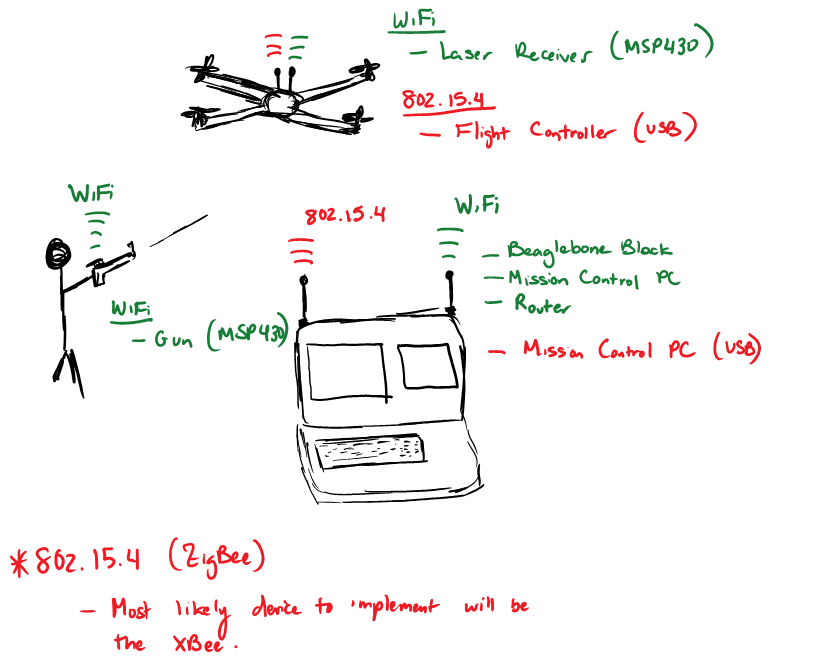 WiFi
- Laser Receiver (MSP430)
802.15.4
- Flight Controller (USB)
WiFi
WiFi
- Gun (MSP430)
802.15.4
WiFi
- Beaglebone Black
- Mission Control PC
- Router
- Mission Control PC (USB)
*802.15.4 (ZigBee)
- Most likely device to implement will be
the XBee.